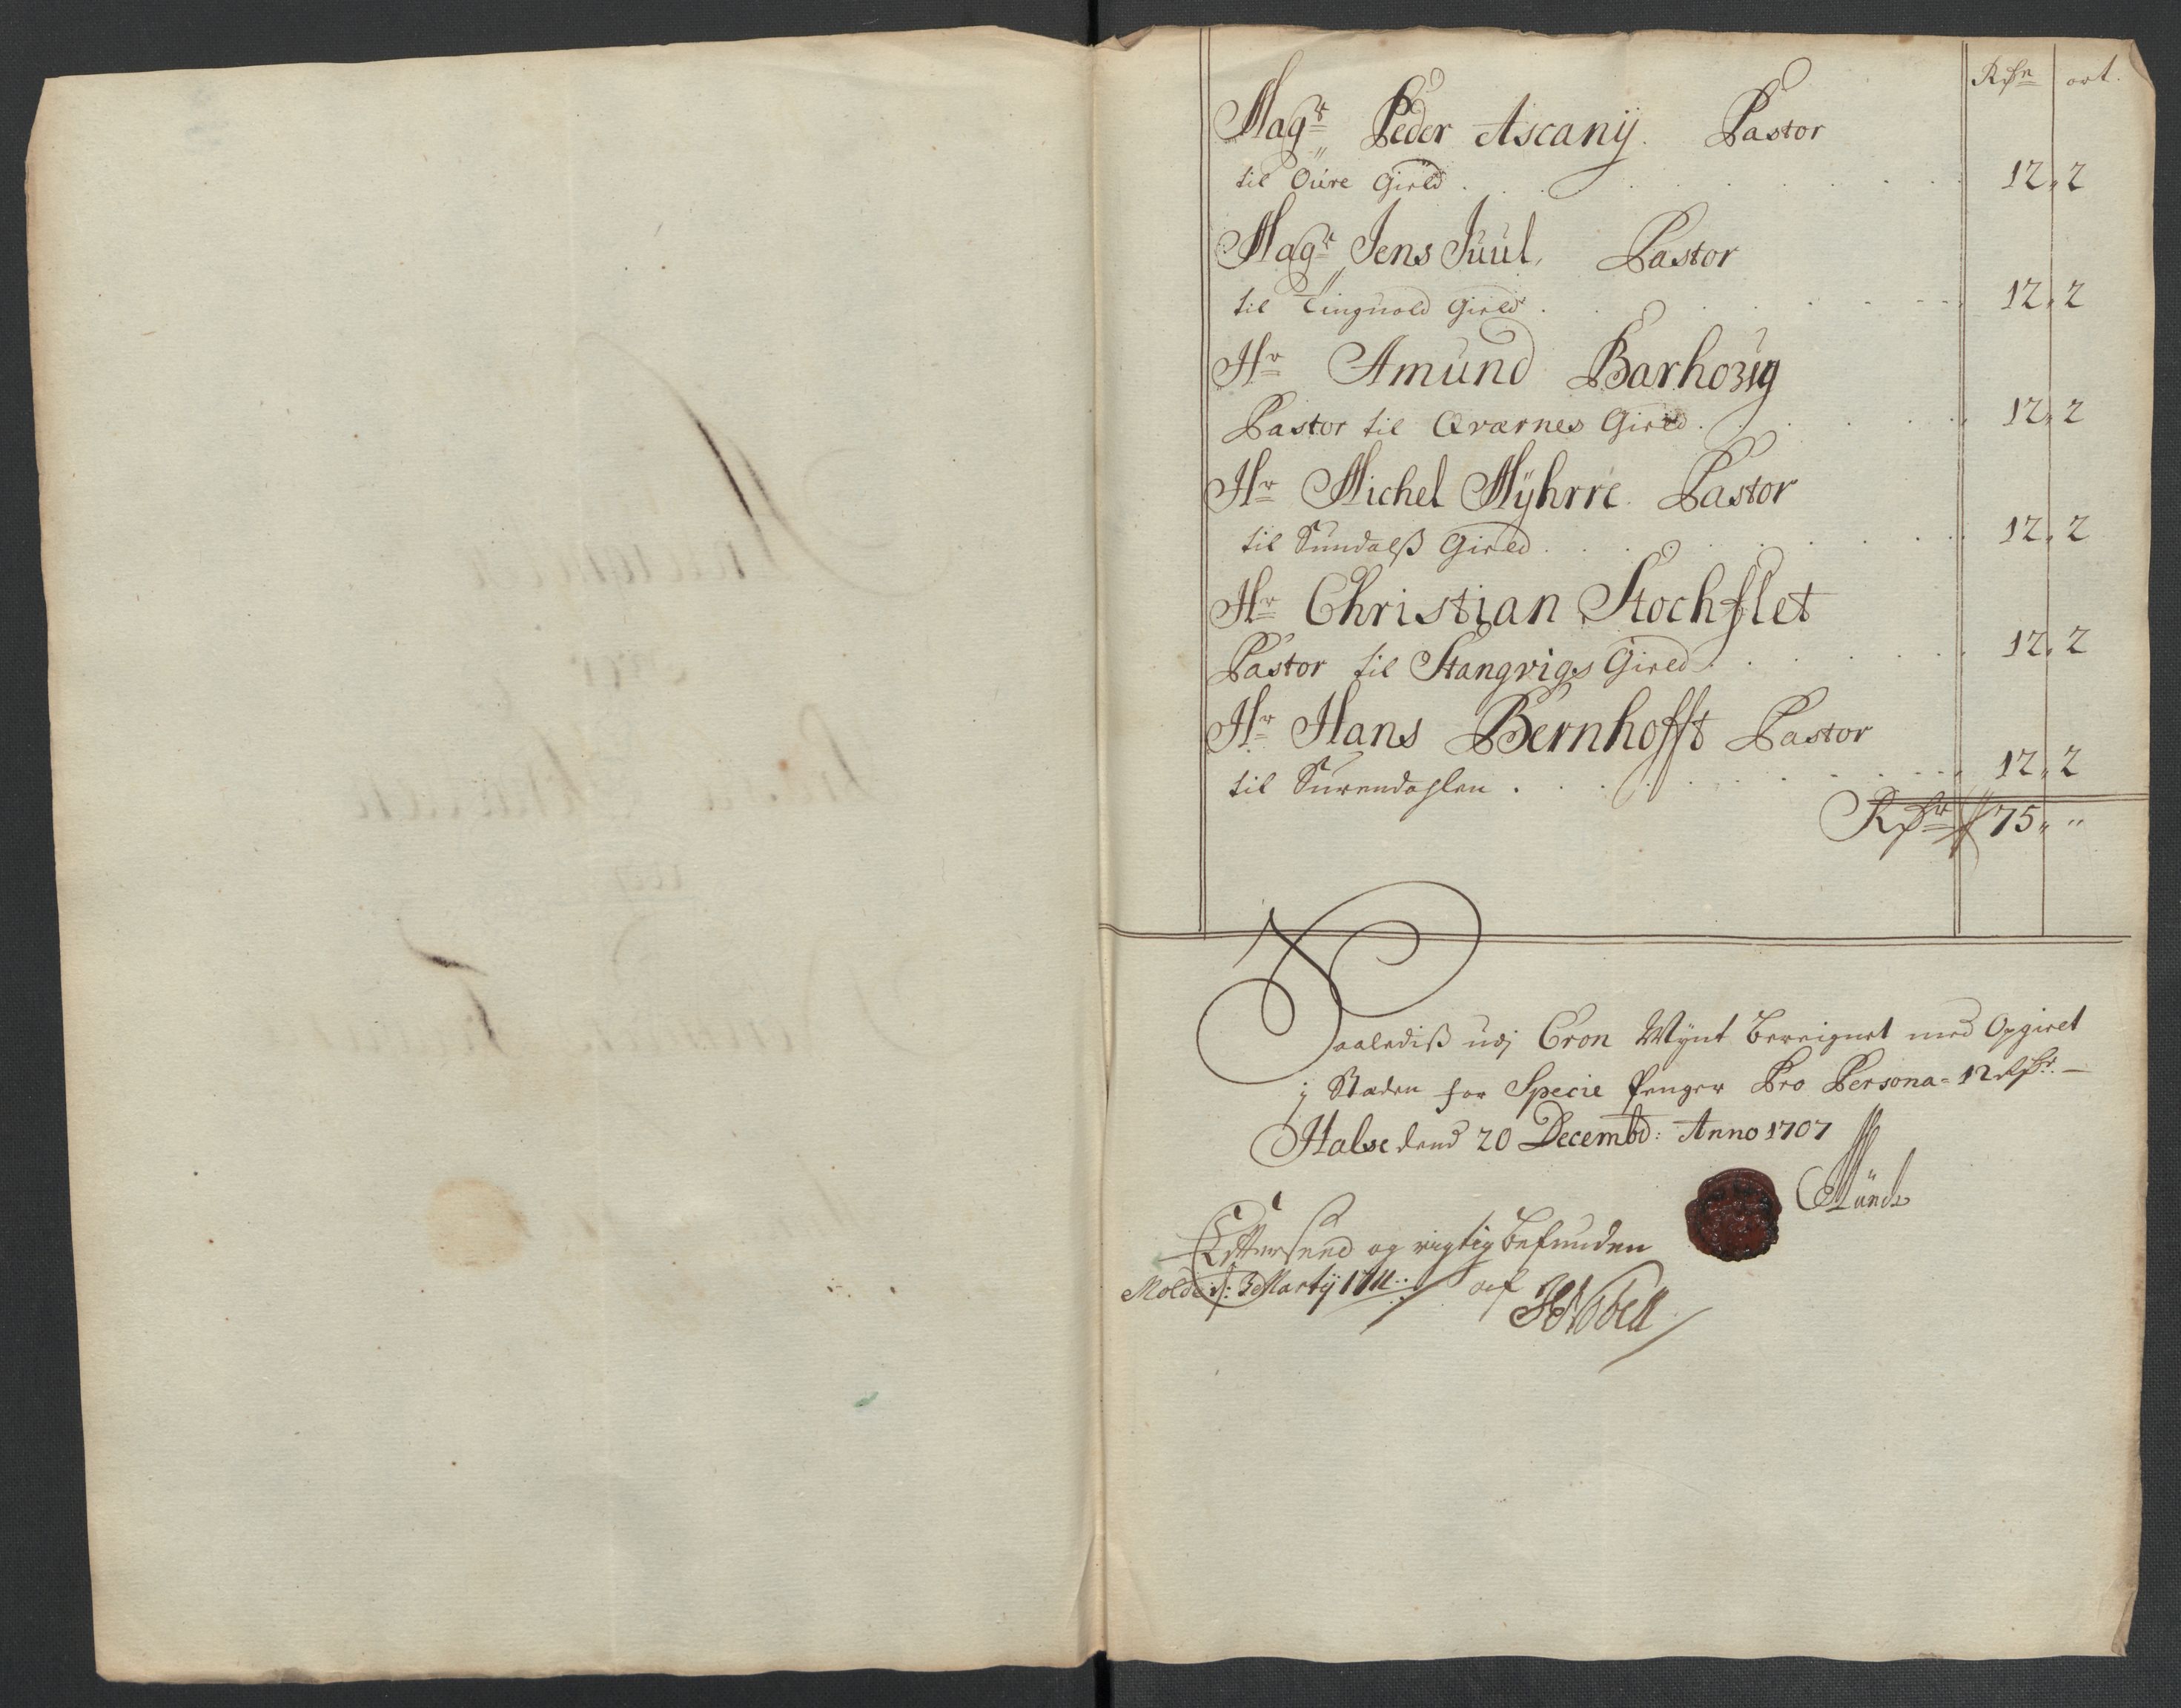 Rdr ort.
Magr Peder Ascanij. Pastor
til Öure Gield 12 2
Magr Jens Juul, Pastor
til Tingvold Gield 12 2
Hr Amund Barhow
Pastor til Qværnes Gield 12 2
Hr Michel Myhrre Pastor
til Sundalß Gield 12 2
Hr Christian Stochflet
Pastor til Stangvigs Gield 12 2
Hr Hans Bernhofft Pastor
til Surendahlen 12 2
Rdr 75
Saaledeß udj Cron Mÿnt bereignet med Opgield
j Steden for Specie Penger Pro Persona 12 Rdr
Halse dend 20 Decembd: Anno 1707
Münch
Efterseed og rigtig befunden
Molde d: 3 Martij 1711 af
Nobell